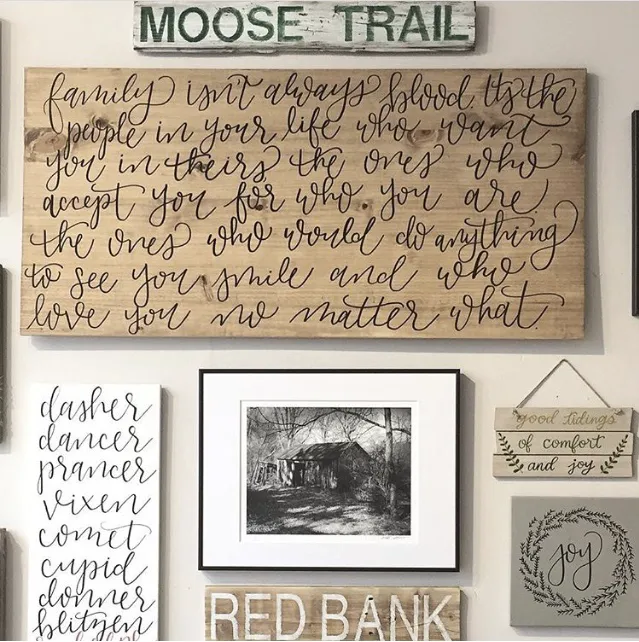 MOOSE TRAIL
family isn't always blood. It's the
people in your life who want
you in theirs the ones who
accept you for who you are
the ones who would do anything
to see you smile and who
love you no matter what.
dasher
dancer
prancer
vixen
comet
cupid
donner
blitzen
good tidings
of comfort
and joy
joy
RED BANK